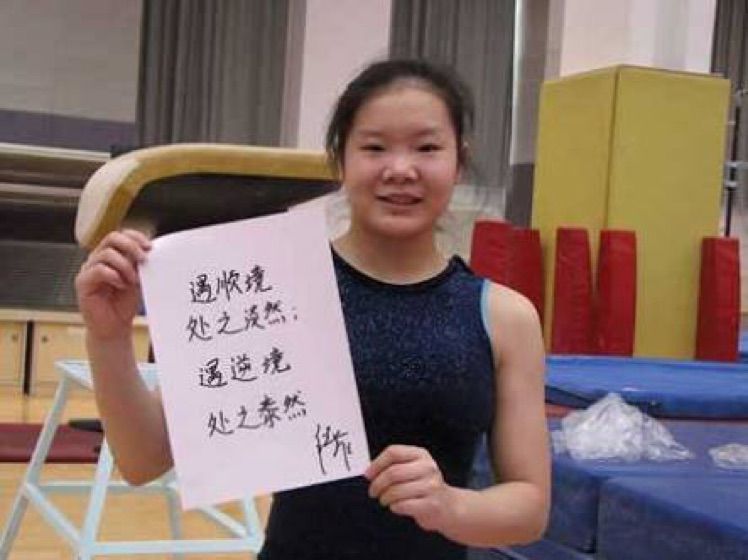 遇顺境
处之淡然；
遇逆境
处之泰然